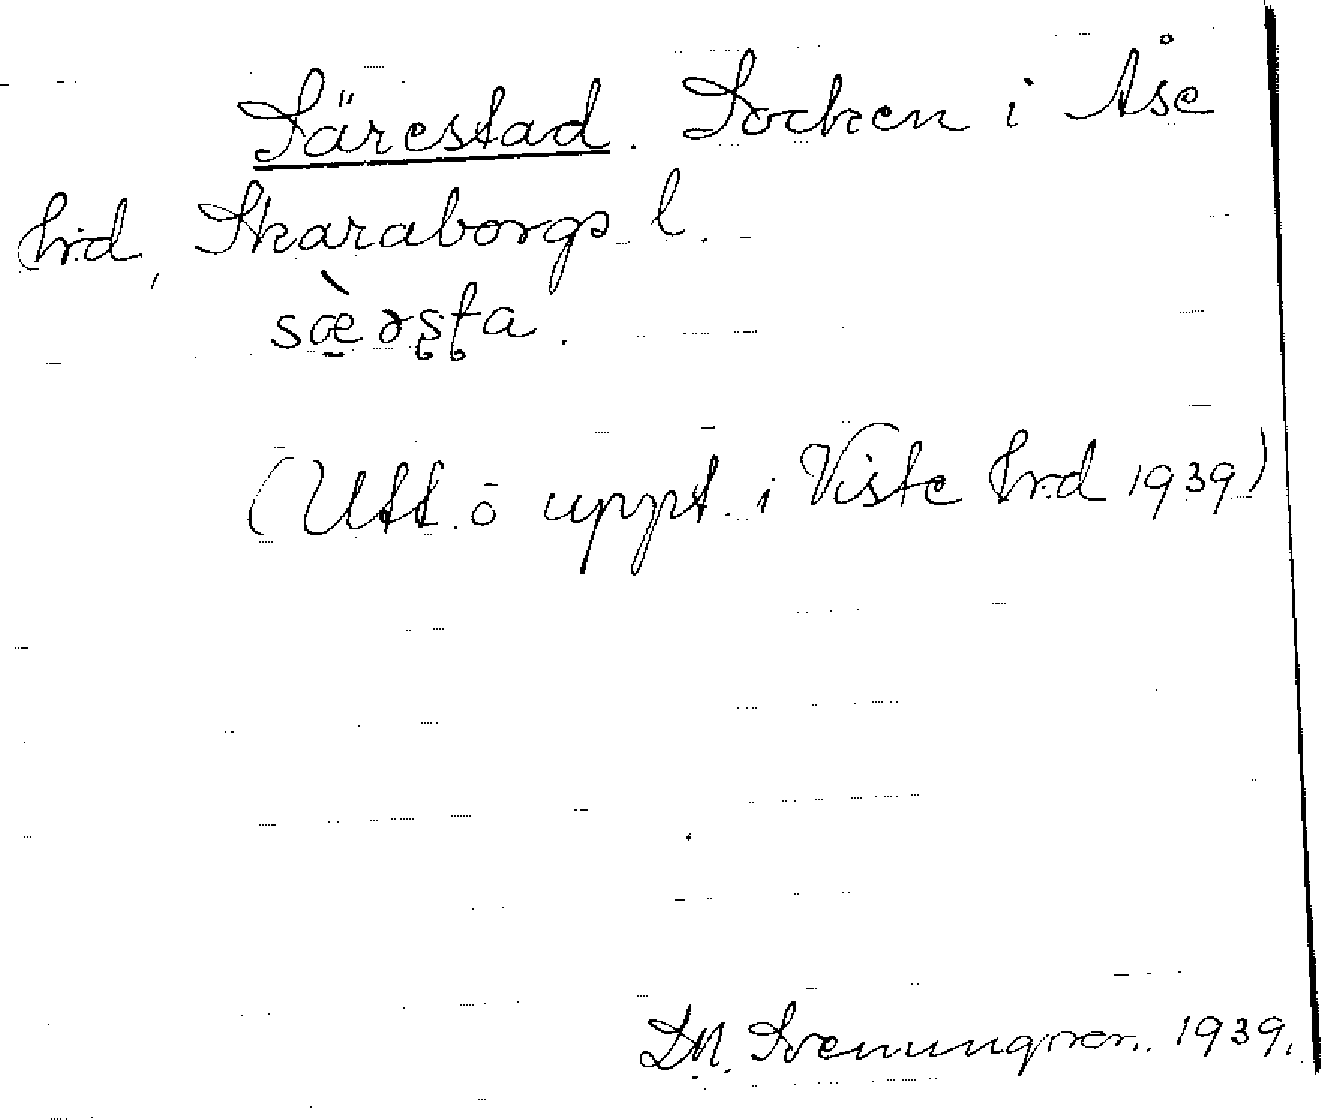 Särestad. Socken i Åse
hrd, Skaraborgs l.
sæ̀rsta.
(Utt. o uppt. i Viste hrd 1939)
D.N. Svenungsson. 1939.